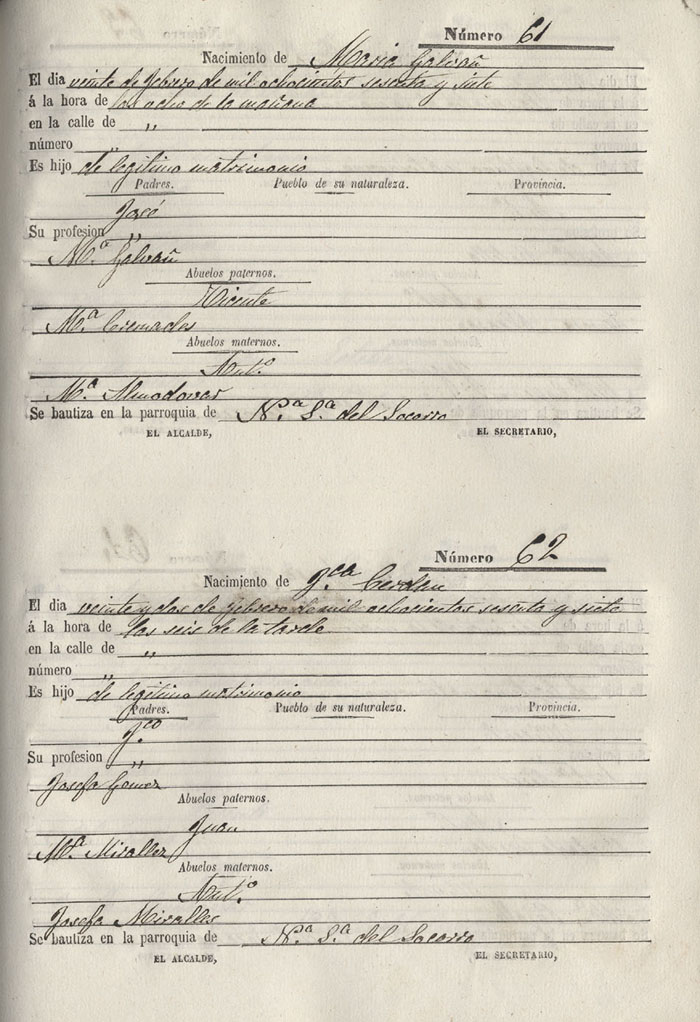 Número 61
Nacimiento de Maria Galvañ
El dia veinte de febrero de mil ochocientos sesenta y siete
á la hora de las ocho de la mañana
en la calle de "
número "
Es hijo de legitimo matrimonio
Padres. Pueblo de su naturaleza. Provincia.
José
Su profesion "
M.ª Galvañ
Abuelos paternos.
Vicente
M.ª Cremades
Abuelos maternos.
Ant.º
M.ª Almodovar
Se bautiza en la parroquia de N.ª S.ª del Socorro
EL ALCALDE, EL SECRETARIO,
Número 62
Nacimiento de F.ca Cerdan
El dia veinte y dos de febrero de mil ochocientos sesenta y siete
á la hora de las seis de la tarde
en la calle de "
número "
Es hijo de legitimo matrimonio
Padres. Pueblo de su naturaleza. Provincia.
F.co
Su profesion "
Josefa Gomez
Abuelos paternos.
Juan
M.ª Miralles
Abuelos maternos.
Ant.º
Josefa Miralles
Se bautiza en la parroquia de N.ª S.ª del Socorro
EL ALCALDE, EL SECRETARIO,